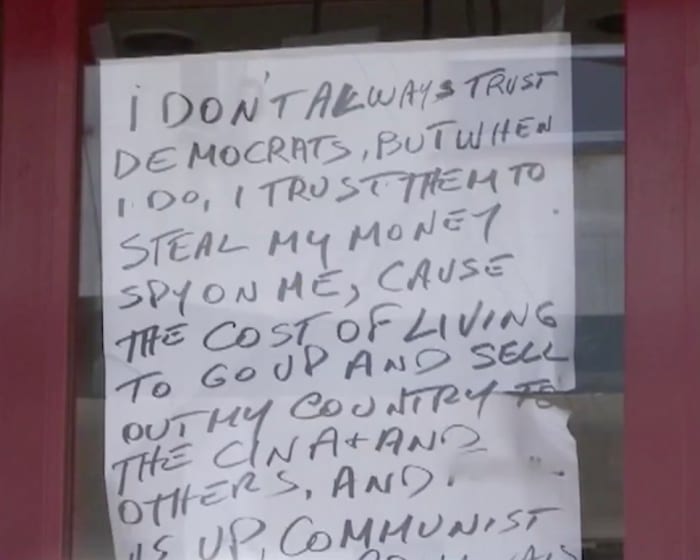 I DON'T ALWAYS TRUST
DEMOCRATS, BUT WHEN
I DO, I TRUST THEM TO
STEAL MY MONEY
SPY ON ME, CAUSE
THE COST OF LIVING
TO GO UP AND SELL
OUT MY COUNTRY TO
THE CINA + AND
OTHERS, AND.
US UP, COMMUNIST